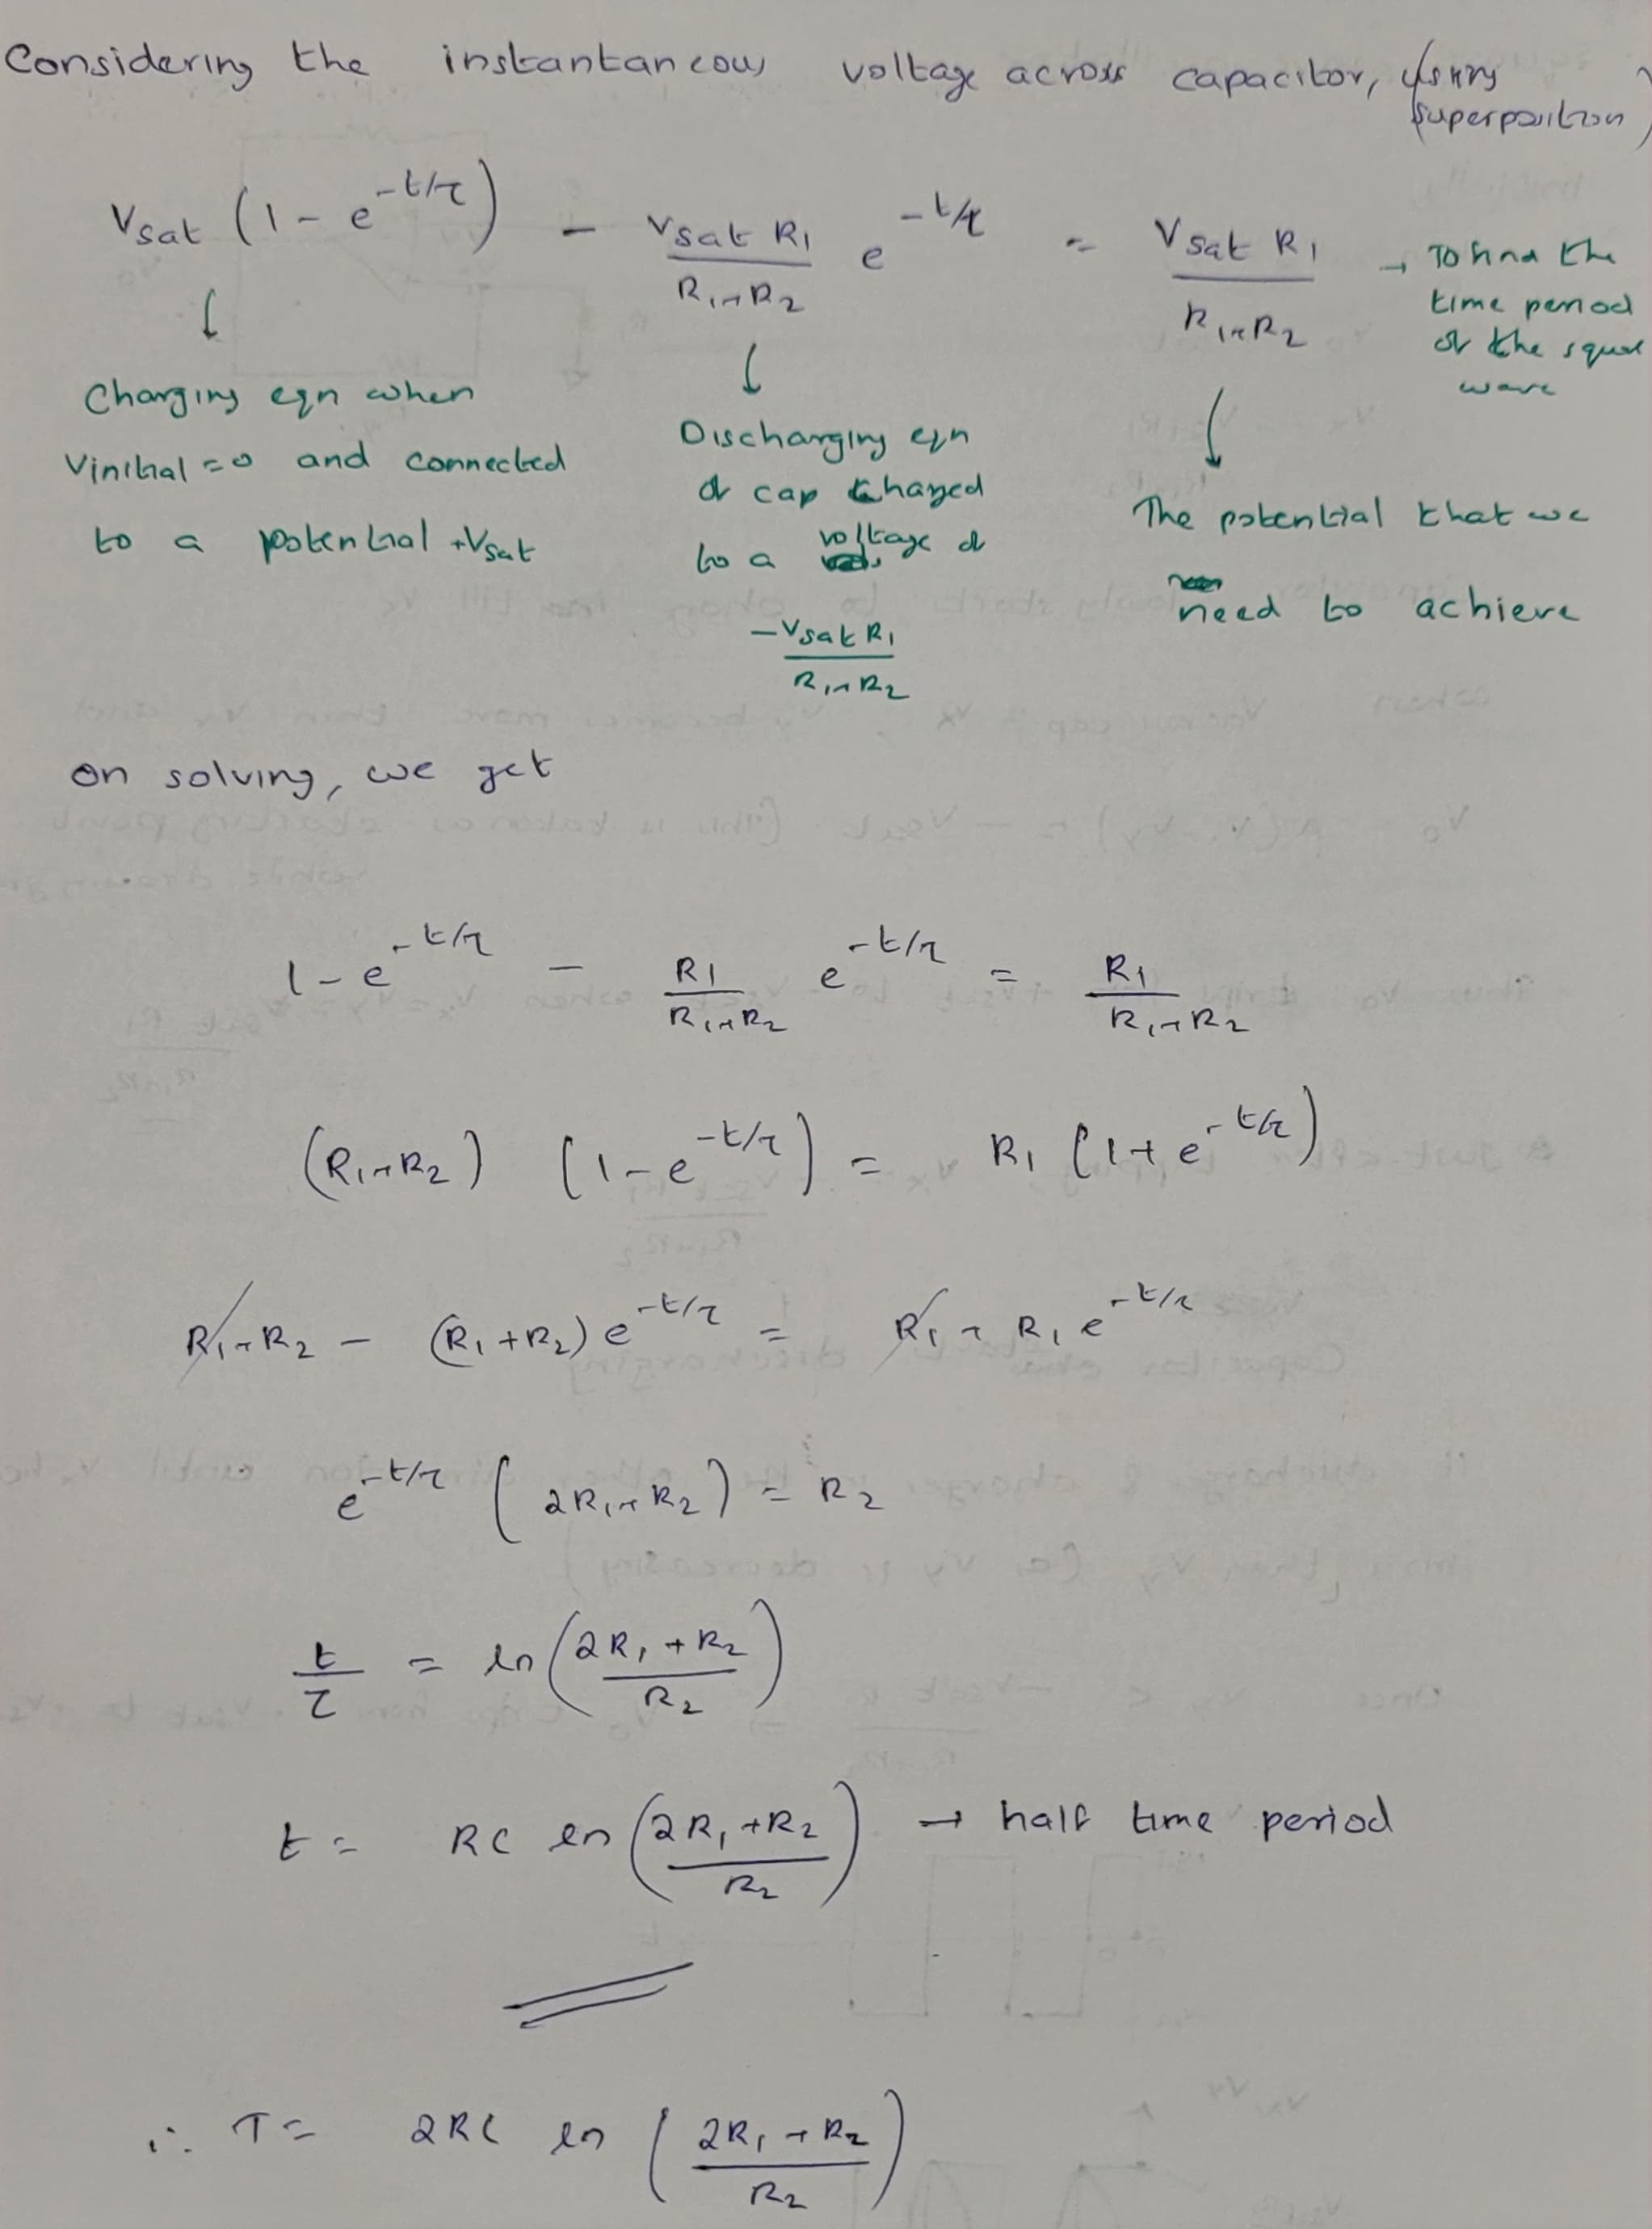 Considering the instantaneous voltage across capacitor, (using superposition)
Vsat (1 - e^{-t/τ}) - \frac{Vsat R1}{R1+R2} e^{-t/τ} = \frac{Vsat R1}{R1+R2} → To find the
time period
of the square
wave
↓ Charging eqn when
Vinitial = 0 and connected
to a potential +Vsat
↓ Discharging eqn
of cap charged
to a voltage of
\frac{-Vsat R1}{R1+R2}
↓ The potential that we
need to achieve
on solving, we get
1 - e^{-t/τ} - \frac{R1}{R1+R2} e^{-t/τ} = \frac{R1}{R1+R2}
(R1+R2) (1 - e^{-t/τ}) = R1 (1 + e^{-t/τ})
R1 + R2 - (R1 + R2) e^{-t/τ} = R1 + R1 e^{-t/τ}
e^{-t/τ} (2R1 + R2) = R2
\frac{t}{τ} = ln (\frac{2R1 + R2}{R2})
t = RC ln (\frac{2R1 + R2}{R2}) → half time period
∴ T = 2RC ln (\frac{2R1 + R2}{R2})